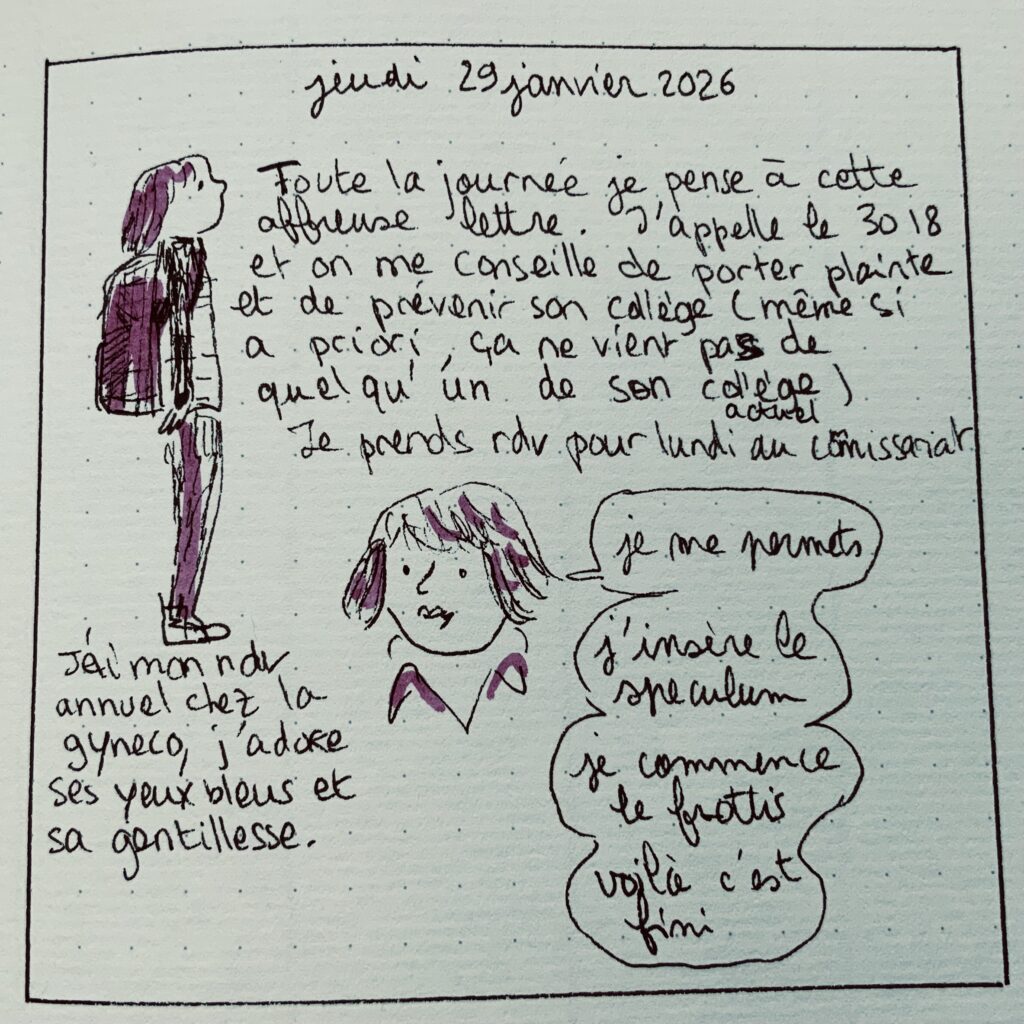 jeudi 29 janvier 2026
Toute la journée je pense à cette
affreuse lettre. J'appelle le 3018
et on me conseille de porter plainte
et de prévenir son collège (même si
a priori, ça ne vient pas de
quelqu'un de son collège)
actuel
Je prends rdv pour lundi au comissariat
je me permets
j'insère le
speculum
je commence
le frottis
voilà c'est
fini
J'ai mon rdv
annuel chez la
gyneco, j'adore
ses yeux bleus et
sa gentillesse.